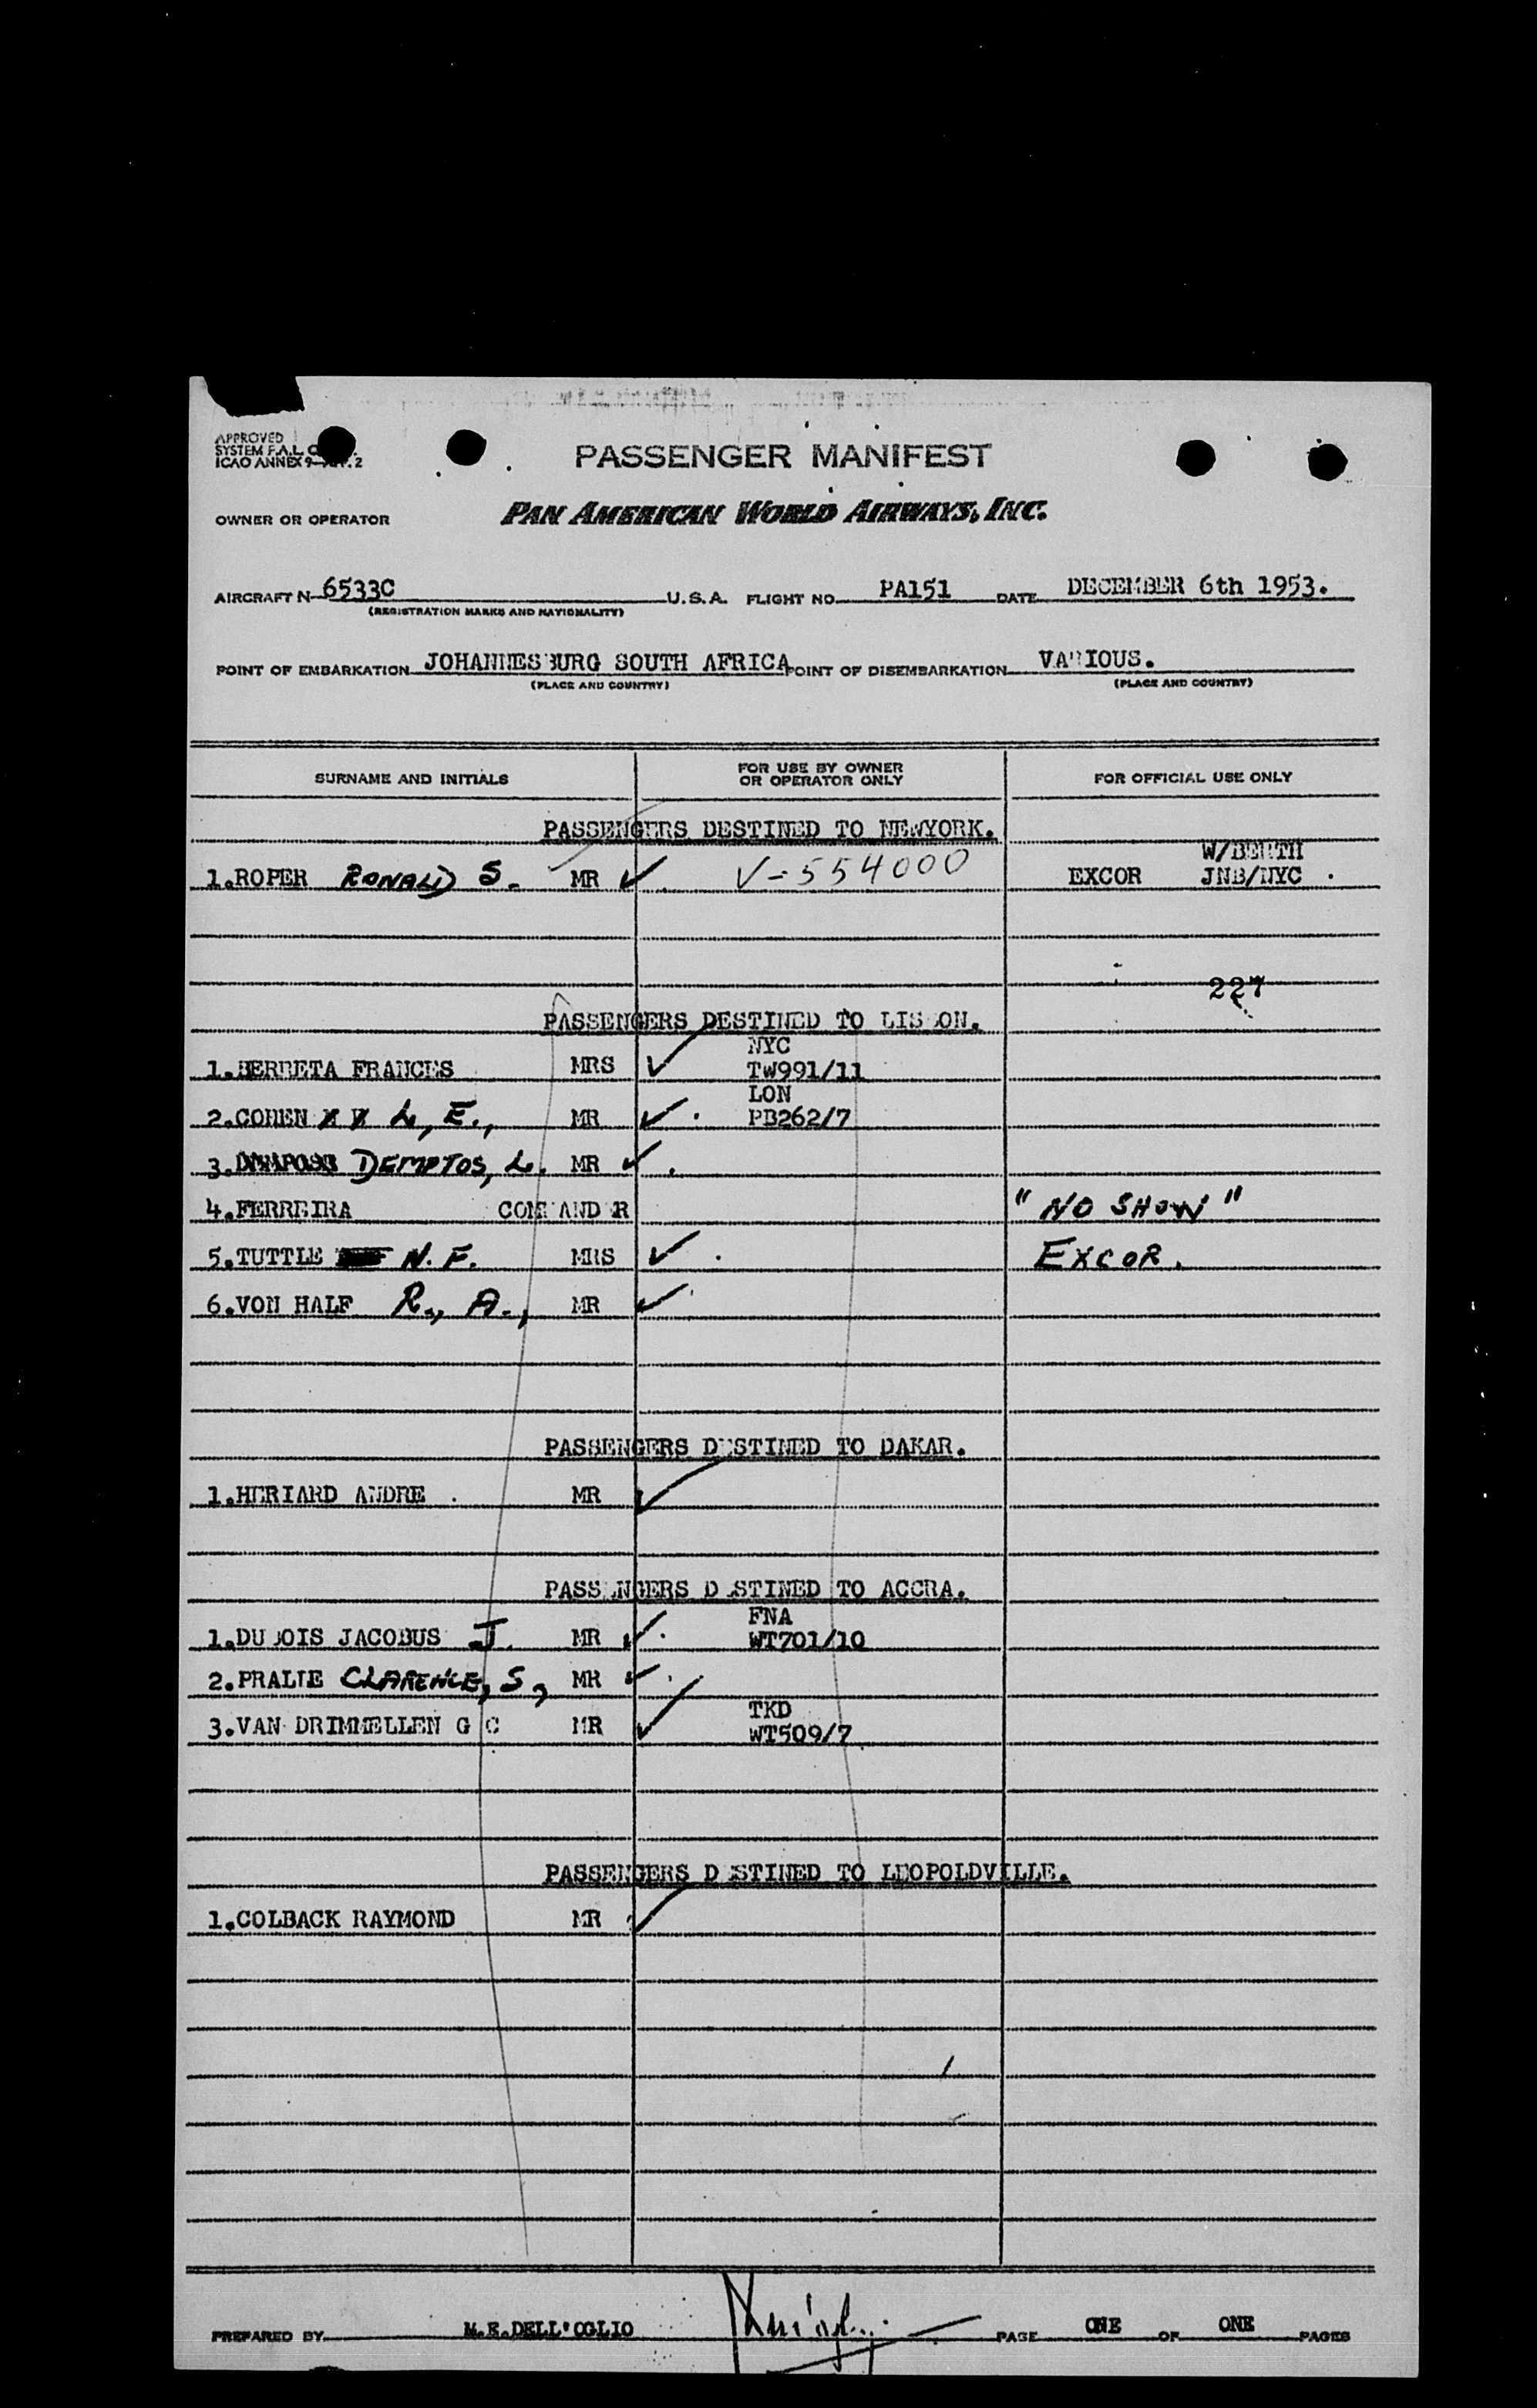 APPROVED
SYSTEM F.A.L.
ICAO ANNEX 9
PASSENGER MANIFEST
OWNER OR OPERATOR PAN AMERICAN WORLD AIRWAYS, INC.
AIRCRAFT N 6533C U.S.A. FLIGHT NO. PA151 DATE DECEMBER 6th 1953.
(REGISTRATION MARKS AND NATIONALITY)
POINT OF EMBARKATION JOHANNESBURG SOUTH AFRICA POINT OF DISEMBARKATION VARIOUS.
(PLACE AND COUNTRY) (PLACE AND COUNTRY)
SURNAME AND INITIALS FOR USE BY OWNER OR OPERATOR ONLY FOR OFFICIAL USE ONLY
PASSENGERS DESTINED TO NEWYORK.
W/BERTH
1.ROPER RONALD S. MR ✓ V-554000 EXCOR JNB/NYC .
227
PASSENGERS DESTINED TO LISBON.
NYC
1.BERRETA FRANCES MRS ✓ TW991/11
LON
2.COHEN L, E., MR ✓ PB262/7
3. DEMPTOS, L. MR ✓
4.FERREIRA COMMANDER "NO SHOW"
5.TUTTLE N. F. MRS ✓ EXCOR.
6.VON HALF R., A., MR ✓
PASSENGERS DESTINED TO DAKAR.
1.HERIARD ANDRE . MR ✓
PASSENGERS DESTINED TO ACCRA.
FNA
1.DUBOIS JACOBUS J. MR ✓ WT701/10
2.PRALIE CLARENCE, S, MR ✓
TKD
3.VAN DRIMMELLEN G C MR ✓ WT509/7
PASSENGERS DESTINED TO LEOPOLDVILLE.
1.COLBACK RAYMOND MR ✓
PREPARED BY M.E.DELL'OGLIO PAGE ONE OF ONE PAGES